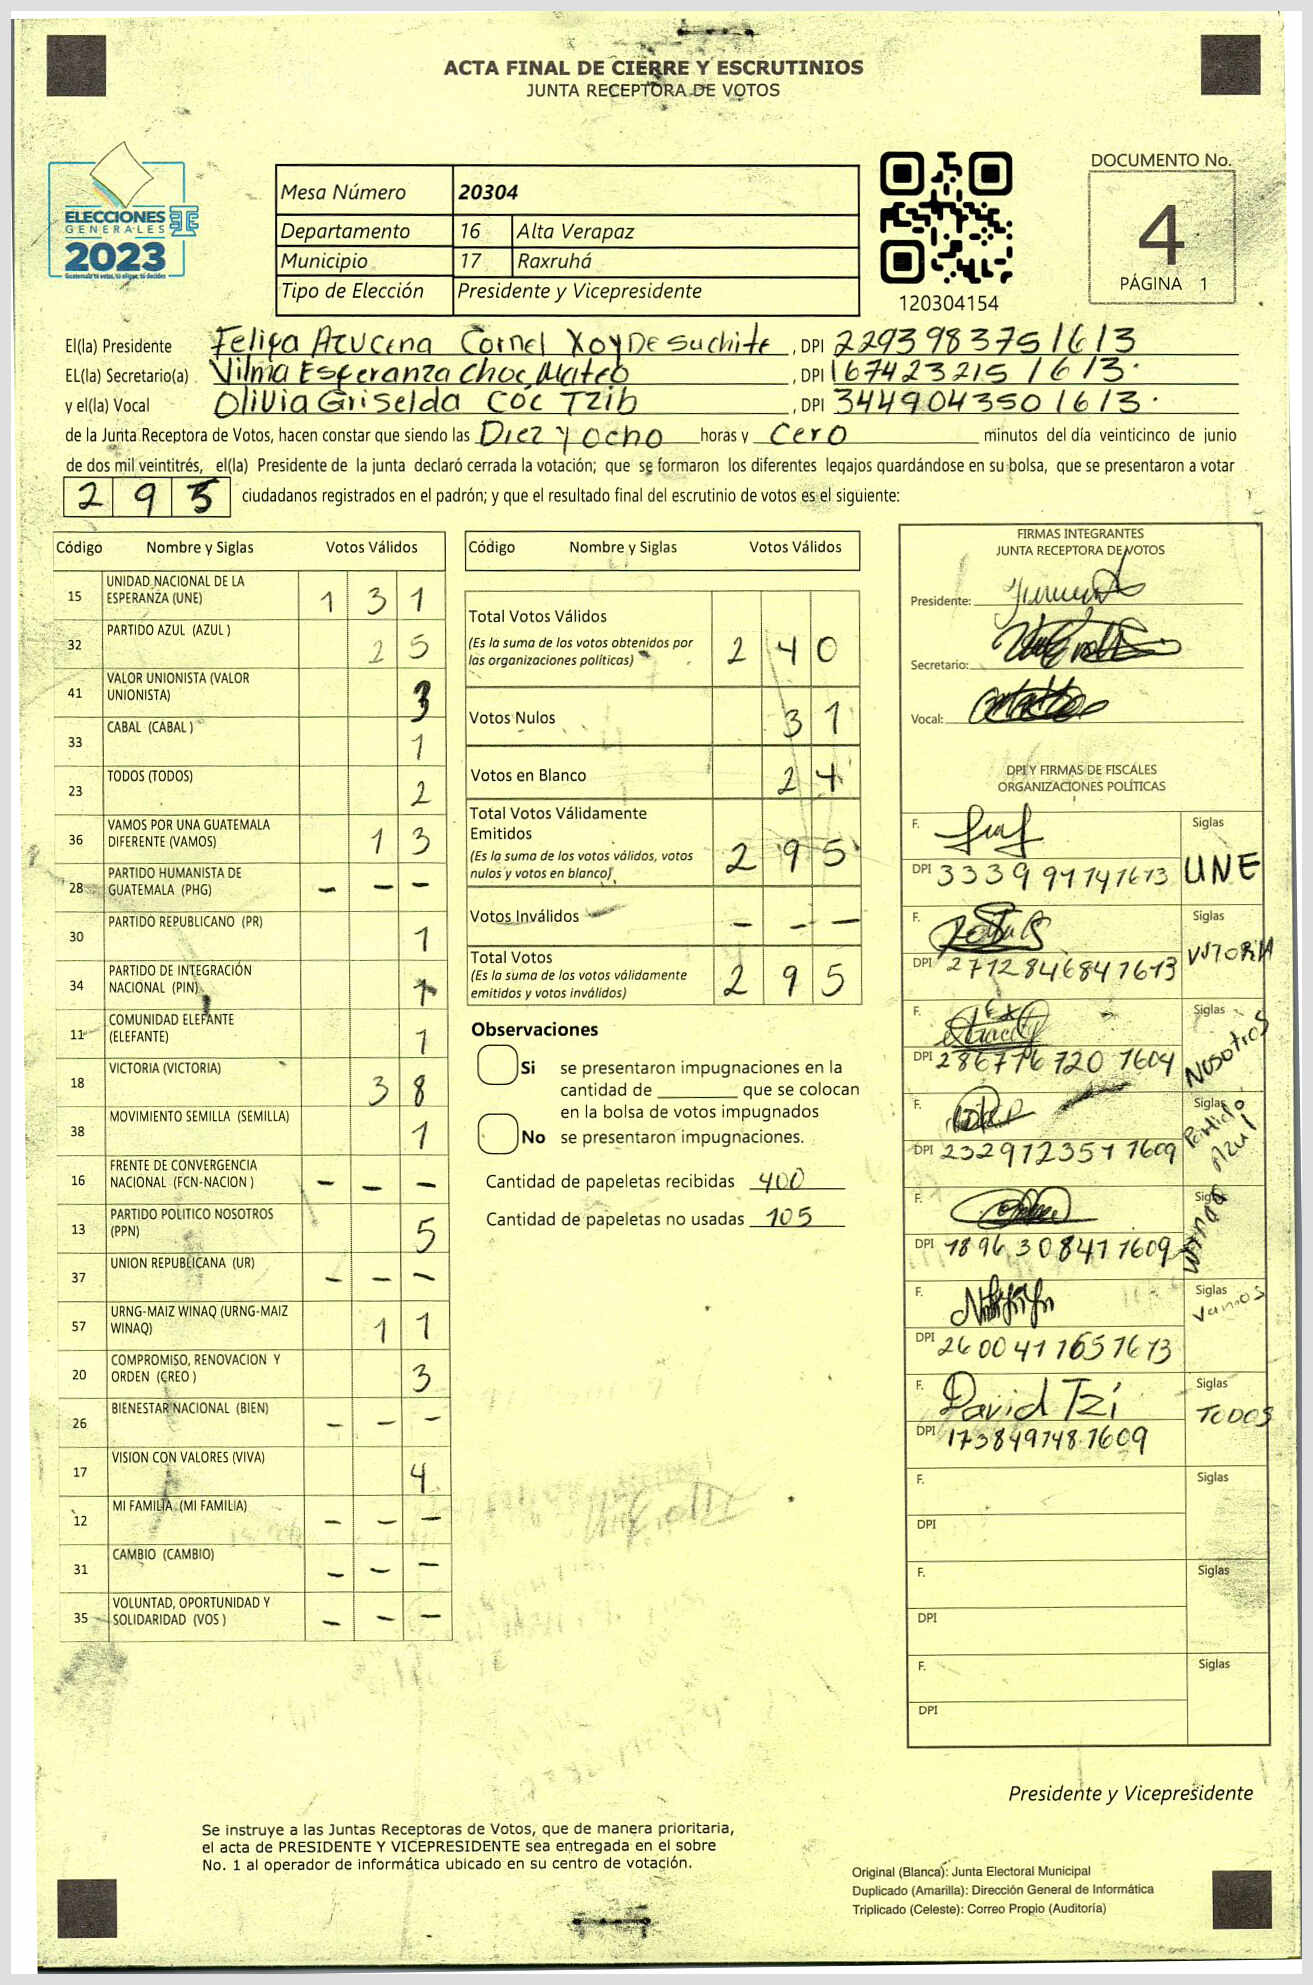 ACTA FINAL DE CIERRE Y ESCRUTINIOS
JUNTA RECEPTORA DE VOTOS
ELECCIONES
GENERALES
2023
Guatemala tú votas, tú eliges, tú decides
Mesa Número 20304
Departamento 16 Alta Verapaz
Municipio 17 Raxruhá
Tipo de Elección Presidente y Vicepresidente
120304154
DOCUMENTO No.
4
PÁGINA 1
El(la) Presidente Feliza Azucena Cornel Xoy De Suchite, DPI 2293983751613
EL(la) Secretario(a) Vilma Esperanza Choc Mateo, DPI 1674232151613.
y el(la) Vocal Olivia Griselda Coc Tzib, DPI 3449043501613.
de la Junta Receptora de Votos, hacen constar que siendo las Diez y ocho horas y cero minutos del día veinticinco de junio
de dos mil veintitrés, el(la) Presidente de la junta declaró cerrada la votación; que se formaron los diferentes legajos guardándose en su bolsa, que se presentaron a votar
295 ciudadanos registrados en el padrón; y que el resultado final del escrutinio de votos es el siguiente:
Código Nombre y Siglas Votos Válidos
15 UNIDAD NACIONAL DE LA ESPERANZA (UNE) 1 3 1
32 PARTIDO AZUL (AZUL ) 2 5
41 VALOR UNIONISTA (VALOR UNIONISTA) 3
33 CABAL (CABAL ) 1
23 TODOS (TODOS) 2
36 VAMOS POR UNA GUATEMALA DIFERENTE (VAMOS) 1 3
28 PARTIDO HUMANISTA DE GUATEMALA (PHG) - - -
30 PARTIDO REPUBLICANO (PR) 1
34 PARTIDO DE INTEGRACIÓN NACIONAL (PIN) 1
11 COMUNIDAD ELEFANTE (ELEFANTE) 1
18 VICTORIA (VICTORIA) 3 8
38 MOVIMIENTO SEMILLA (SEMILLA) 1
16 FRENTE DE CONVERGENCIA NACIONAL (FCN-NACION ) - - -
13 PARTIDO POLITICO NOSOTROS (PPN) 5
37 UNION REPUBLICANA (UR) - - -
57 URNG-MAIZ WINAQ (URNG-MAIZ WINAQ) 1 1
20 COMPROMISO, RENOVACION Y ORDEN (CREO ) 3
26 BIENESTAR NACIONAL (BIEN) - - -
17 VISION CON VALORES (VIVA) 4
12 MI FAMILIA (MI FAMILIA) - - -
31 CAMBIO (CAMBIO) - - -
35 VOLUNTAD, OPORTUNIDAD Y SOLIDARIDAD (VOS ) - - -
Código Nombre y Siglas Votos Válidos
Total Votos Válidos 2 4 0
(Es la suma de los votos obtenidos por las organizaciones políticas)
Votos Nulos 3 1
Votos en Blanco 2 4
Total Votos Válidamente Emitidos 2 9 5
(Es la suma de los votos válidos, votos nulos y votos en blanco)
Votos Inválidos - - -
Total Votos 2 9 5
(Es la suma de los votos válidamente emitidos y votos inválidos)
Observaciones
Si se presentaron impugnaciones en la
cantidad de ________ que se colocan
en la bolsa de votos impugnados
No se presentaron impugnaciones.
Cantidad de papeletas recibidas 400
Cantidad de papeletas no usadas 105
FIRMAS INTEGRANTES
JUNTA RECEPTORA DE VOTOS
Presidente:
Secretario:
Vocal:
DPI Y FIRMAS DE FISCALES
ORGANIZACIONES POLÍTICAS
F. Siglas
DPI 3339971471613 UNE
F. Siglas
DPI 2712846841613 VITORIA
F. Siglas
DPI 286776720 1604 Nosotros
F. Siglas
DPI 232972351 1609 Partido Azul
F. Siglas
DPI 1896308411609 WINAQ
F. Siglas
DPI 2600411651613 Vamos
F. David Tzi Siglas
DPI 1738497481609 TODOS
F. Siglas
DPI
F. Siglas
DPI
F. Siglas
DPI
Presidente y Vicepresidente
Se instruye a las Juntas Receptoras de Votos, que de manera prioritaria,
el acta de PRESIDENTE Y VICEPRESIDENTE sea entregada en el sobre
No. 1 al operador de informática ubicado en su centro de votación.
Original (Blanca): Junta Electoral Municipal
Duplicado (Amarilla): Dirección General de Informática
Triplicado (Celeste): Correo Propio (Auditoría)